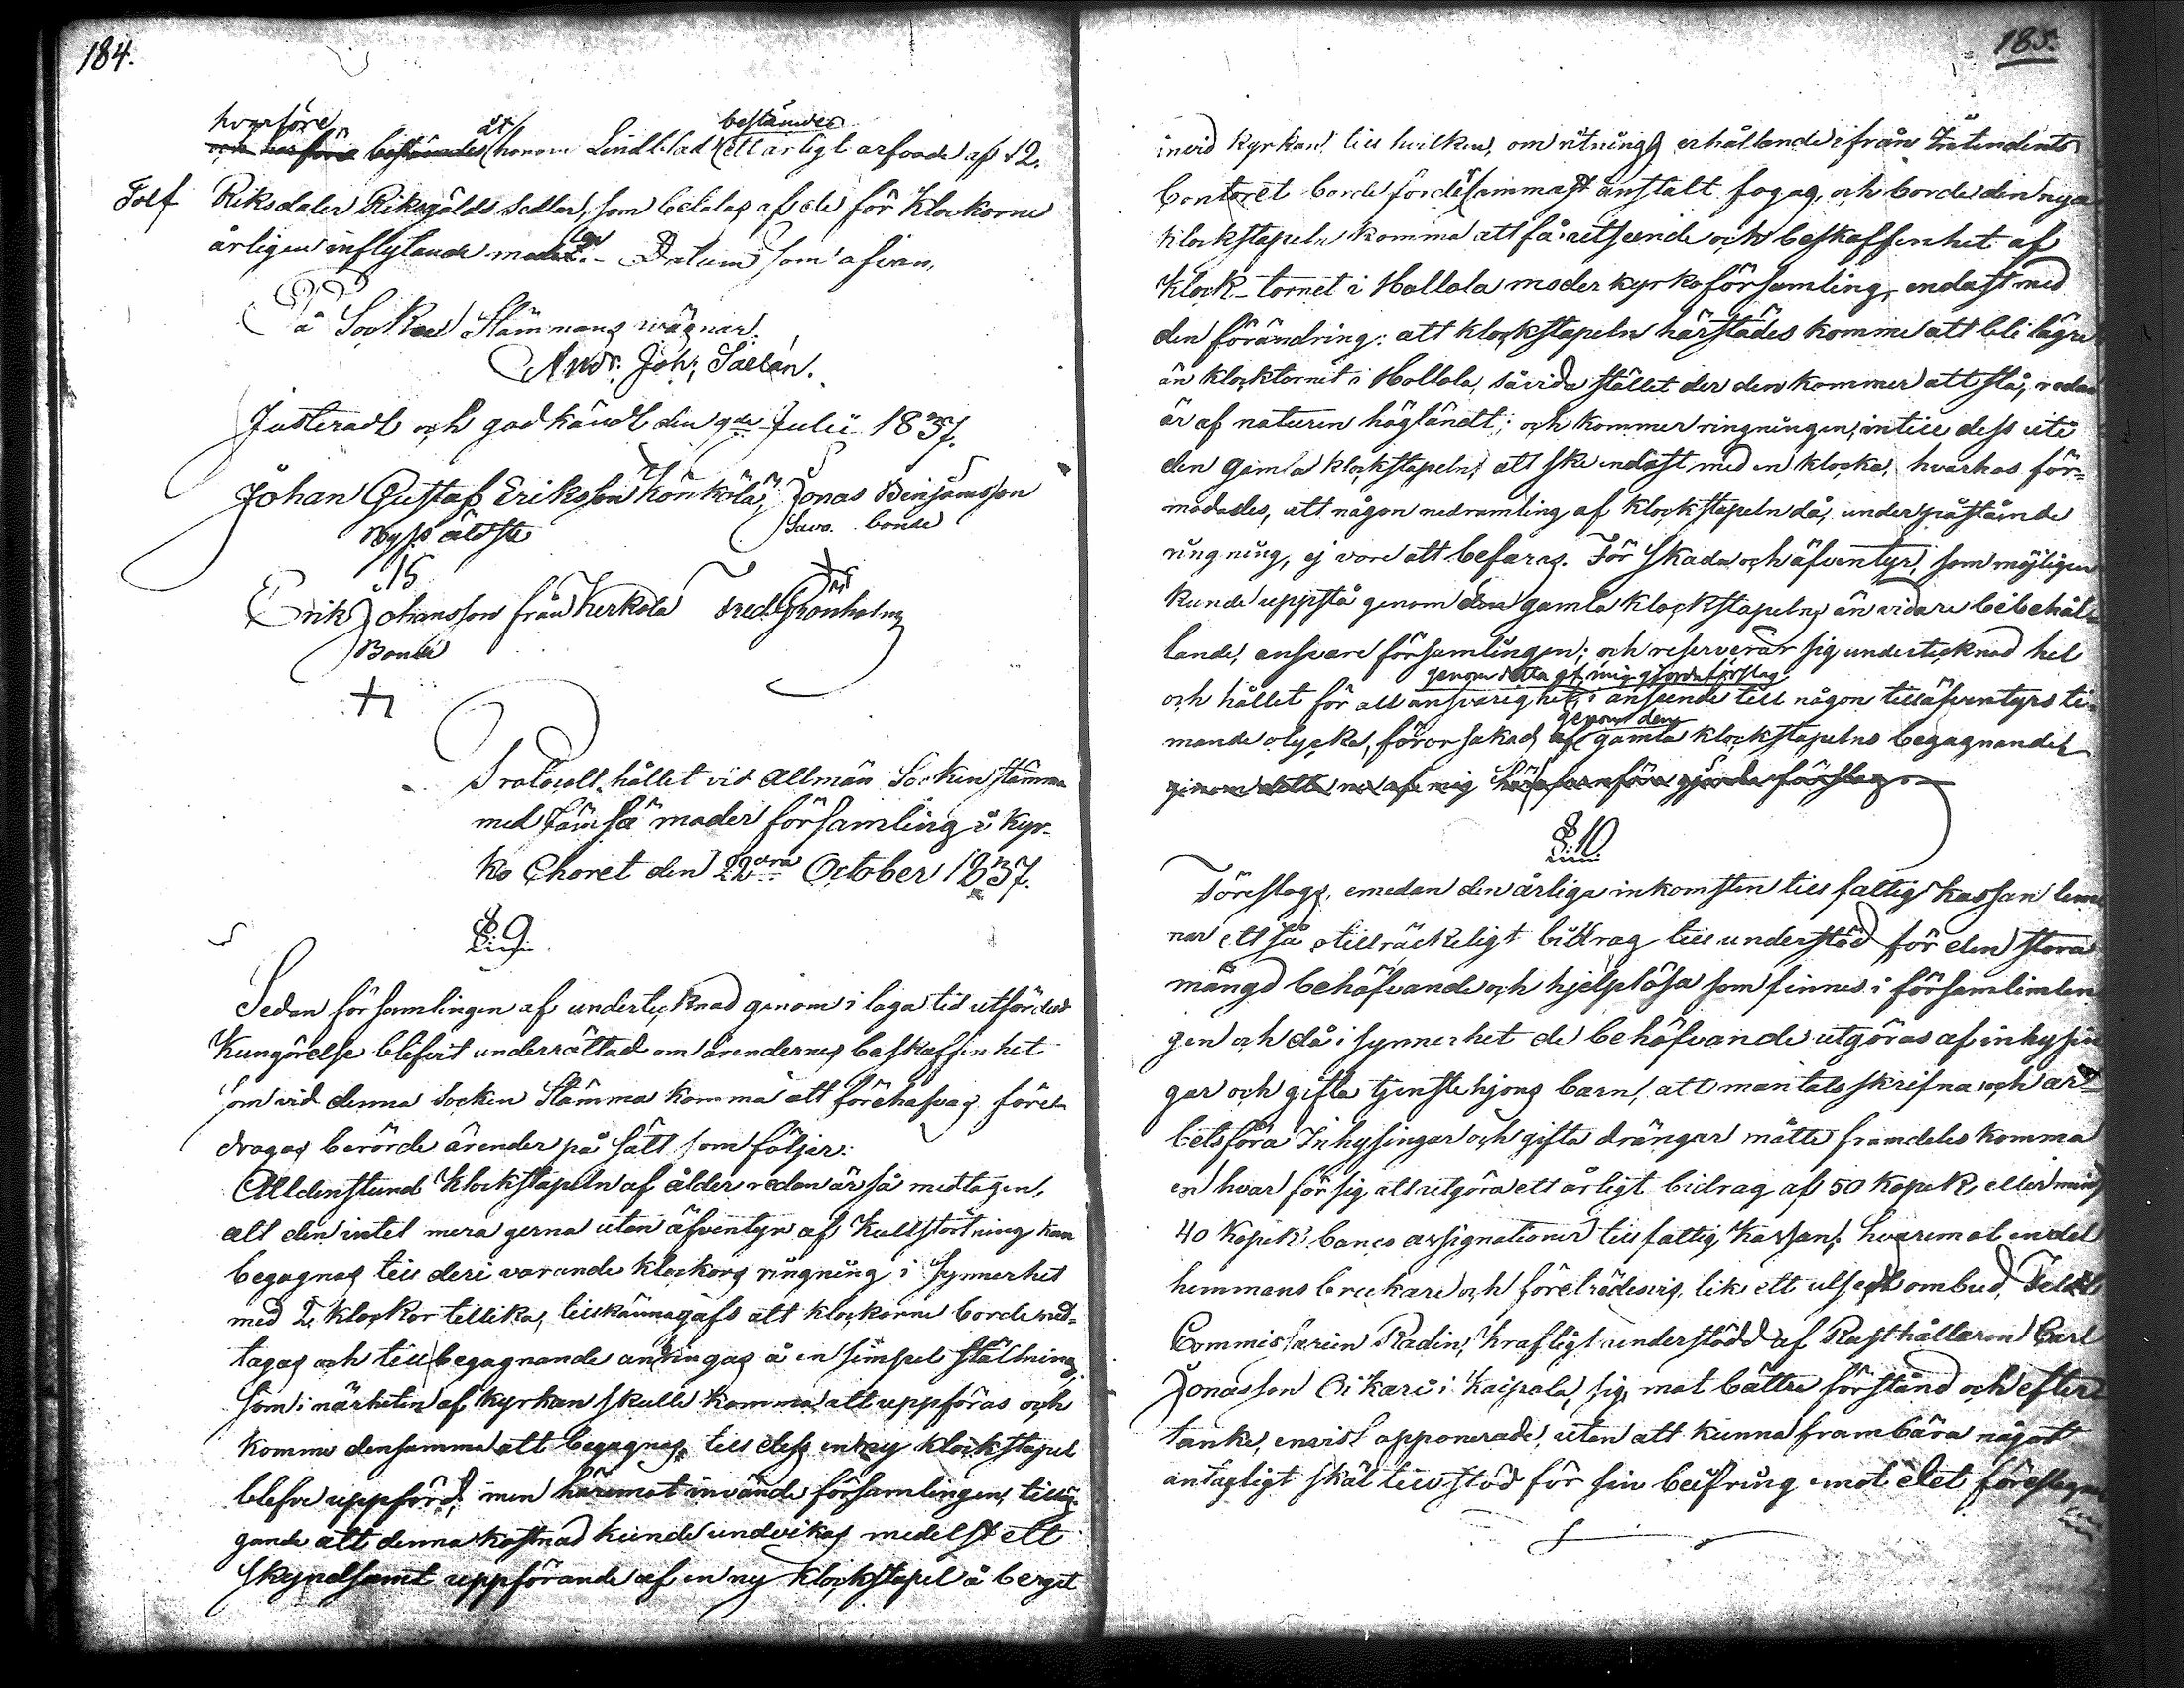 184.
hvarföre åt bestämdes
och härföre bestämdes honom Lindblad ett årligt arfvode af 12.
Tolf Riksdaler Riksgälds Sedlar, som betalas af de för Klockorne
årligen inflytande medel. Datum som ofvan.
På Socken Stämmans vägnar.
And: Joh: Saelán.
Justeradt och godkändt den 9de Julii 1837.
Johan Gustaf Eriksson Könkölä, Jonas Benjamsson
Byss äldste Savo. bonde
Erik Johansson från Kerkola Fred: Grönholm
Bonde
Protocoll hållet vid Allmän Socken stämma
med Jämsä moder församling i Kyr-
ko Choret den 22dra October 1837.
§. 9.
Sedan församlingen af undertecknad genom i laga tid utfärdad
Kungörelse blifvit underrättad om ärendernes beskaffenhet
som vid denna Socken Stämma komma att förehafvas före-
drages berörde ärender på sätt som följer:
Alldenstund Klockstapeln af ålder redan är så medtagen,
att den intet mera gerna utan äfventyr af Kullstörtning kan
begagnas till deri varande klockors ringning i Synnerhet
med 2. klockor tillika, tillkännagafs att klockorne borde ned-
tagas och till begagnande anbringas å en simpel ställning,
som i närheten af kyrkan skulle komma att uppföras och
komme densamma att begagnas till dess en ny klockstapel
blefve uppförd; men häremot invände församlingen, tillä-
gande att denna kostnad kunde undvikas medelst ett
skyndsamt uppförande af en ny klockstapel å berget
185.
invid kyrkan till hvilken, om ritnings erhållande ifrån Intendents
Contoret borde fördersammast anstalt fogas, och borde den nya
klockstapeln komma att få utseende och beskaffenhet af
Klock-tornet i Hollola moder kyrkoförsamling, endast med
den förändring: att klockstapeln härstädes komme att bli lägre
än klocktornet i Hollola, såvida stället der den kommer att stå, redan
är af naturen högländt; och kommer ringningen, intill dess uti
den gamla klockstapeln, att ske endast med en klocka, hvarhos för-
modades, att någon nedramling af klockstapeln då, under påstående
ringning, ej vore att befaras. För skada och äfventyr, som möjligen
kunde uppstå genom den gamla klockstapelns än vidare bibehål-
lande, ansvare församlingen; och reserverar sig undertecknad hel
genom detta af mig gjorde förslag
och hållet för all ansvarighet i anseende till någon tilläfventyrs ti-
genom den
mande olycka, förorsakad af gamla klockstapelns begagnande
genom detta nu af mig härofvanföre gjorde förslag.
§. 10.
Föreslogs, emedan den årliga inkomsten till fattig kassan lem-
nar ett så otillräckeligt bidrag till understöd för den stora
mängd behöfvande och hjelplösa som finnes i församlimlin
gen och då i synnerhet de behöfvande utgöras af inhysin
gar och gifta tjenstehjons barn, att mantalsskrifna och ar-
betsföra Inhysingar och gifta drängar måtte framdeles komma
en hvar för sig att utgöra ett årligt bidrag af 50 Kopek, eller minst
40 Kopek banco assignationer till fattig kassan; hvaremot en del
hemmans brukare och företrädesvis, lik ett utsedt ombud, Feldt
Commissarien Radin, kraftigt understödd af Rusthållaren Carl
Jonasson Oikari i Kaipola, sig mot bättre förstånd och efter
tanke, envist opponerade, utan att kunna frambära något
antagligt skäl till stöd för sin beifring emot det föreslagna